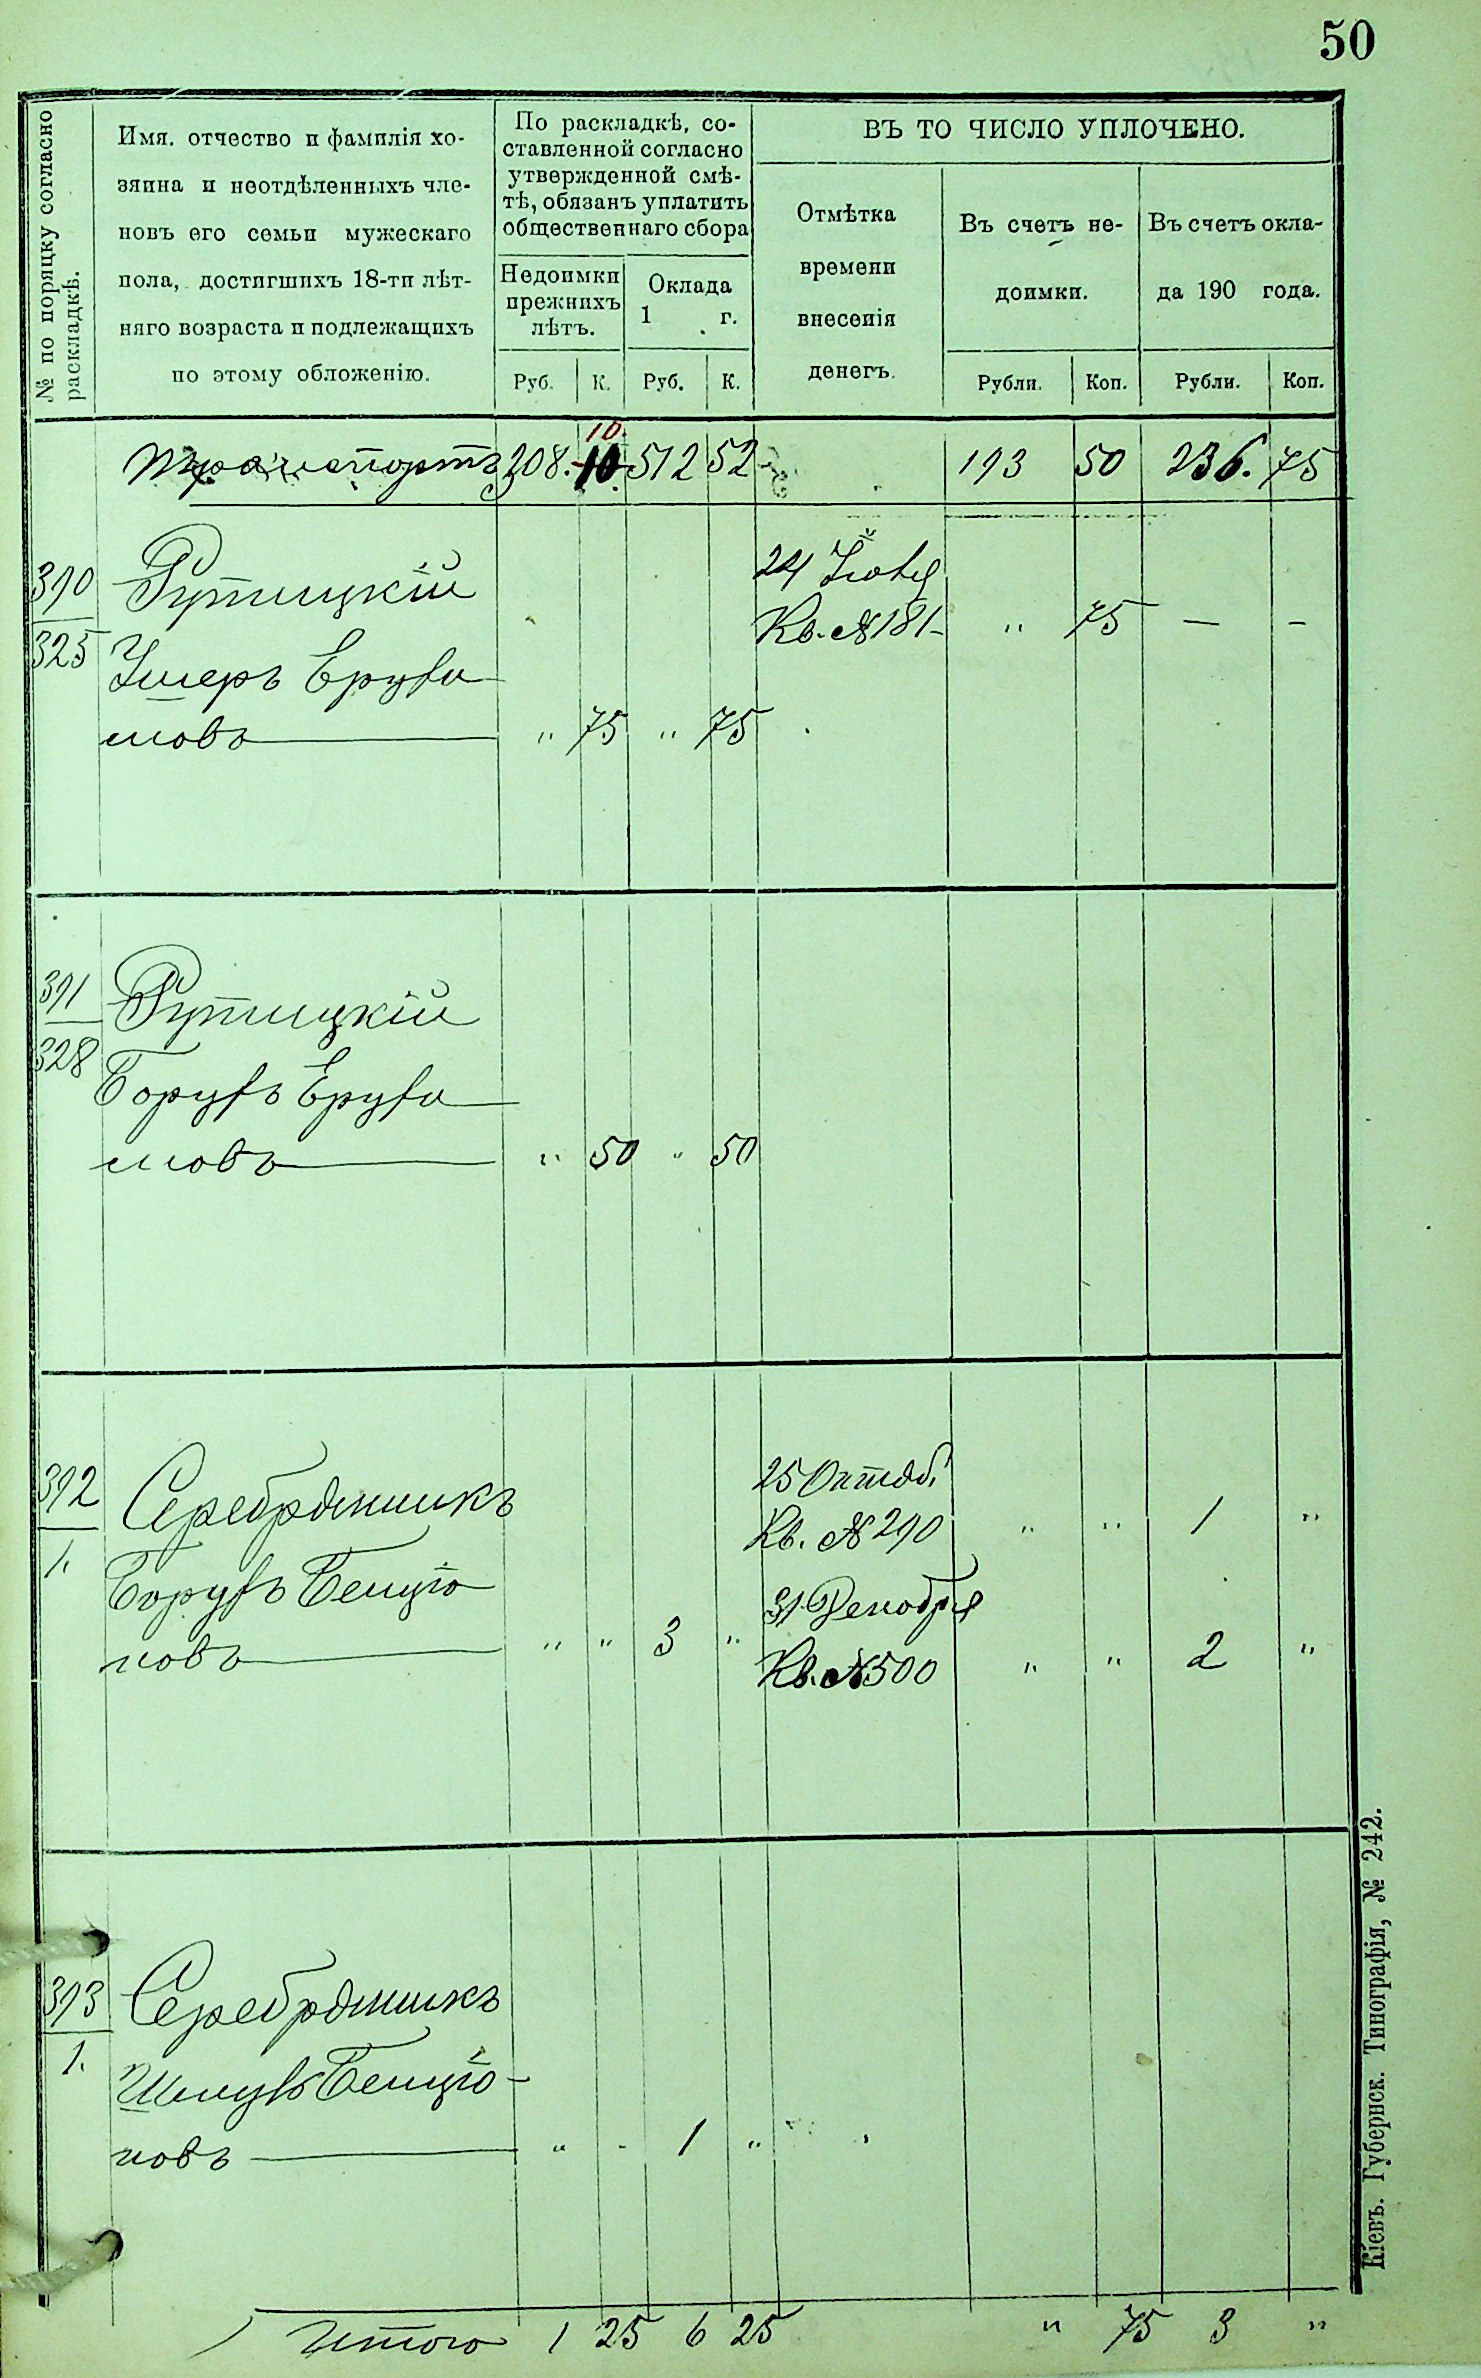 50
№ по порядку согласно
раскладкѣ.
Имя. отчество и фамилія хо-
зяина и неотдѣленныхъ чле-
новъ его семьи мужескаго
пола, достигшихъ 18-ти лѣт-
няго возраста и подлежащихъ
по этому обложенію.
По раскладкѣ, со-
ставленной согласно
утвержденной смѣ-
тѣ, обязанъ уплатить
общественнаго сбора
Недоимки
прежнихъ
лѣтъ.
Оклада
1 г.
Руб. К. Руб. К.
ВЪ ТО ЧИСЛО УПЛОЧЕНО.
Отмѣтка
времени
внесенія
денегъ.
Въ счетъ не-
доимки.
Въ счетъ окла-
да 190 года.
Рубли. Коп. Рубли. Коп.
10.
Транспортъ 208. 10. 512 52 193 50 236. 75
390
325
Рутицкій
Ушеръ Еруха
мовъ " 75 " 75
24 Іюня
Кв. № 181 " 75 — —
391
328
Рутицкій
Борухъ Еруха
мовъ " 50 " 50
392
1.
Серебряникъ
Борухъ Бенціо
новъ " " 3 "
25 Октяб.
Кв. № 290 " " 1 "
31 Декабря
Кв. № 500 " " 2 "
393
1.
Серебряникъ
Бенціо-
новъ " - 1 "
Итого 1 25 6 25 " 75 3 "
Кіевъ. Губернск. Типографія, № 242.